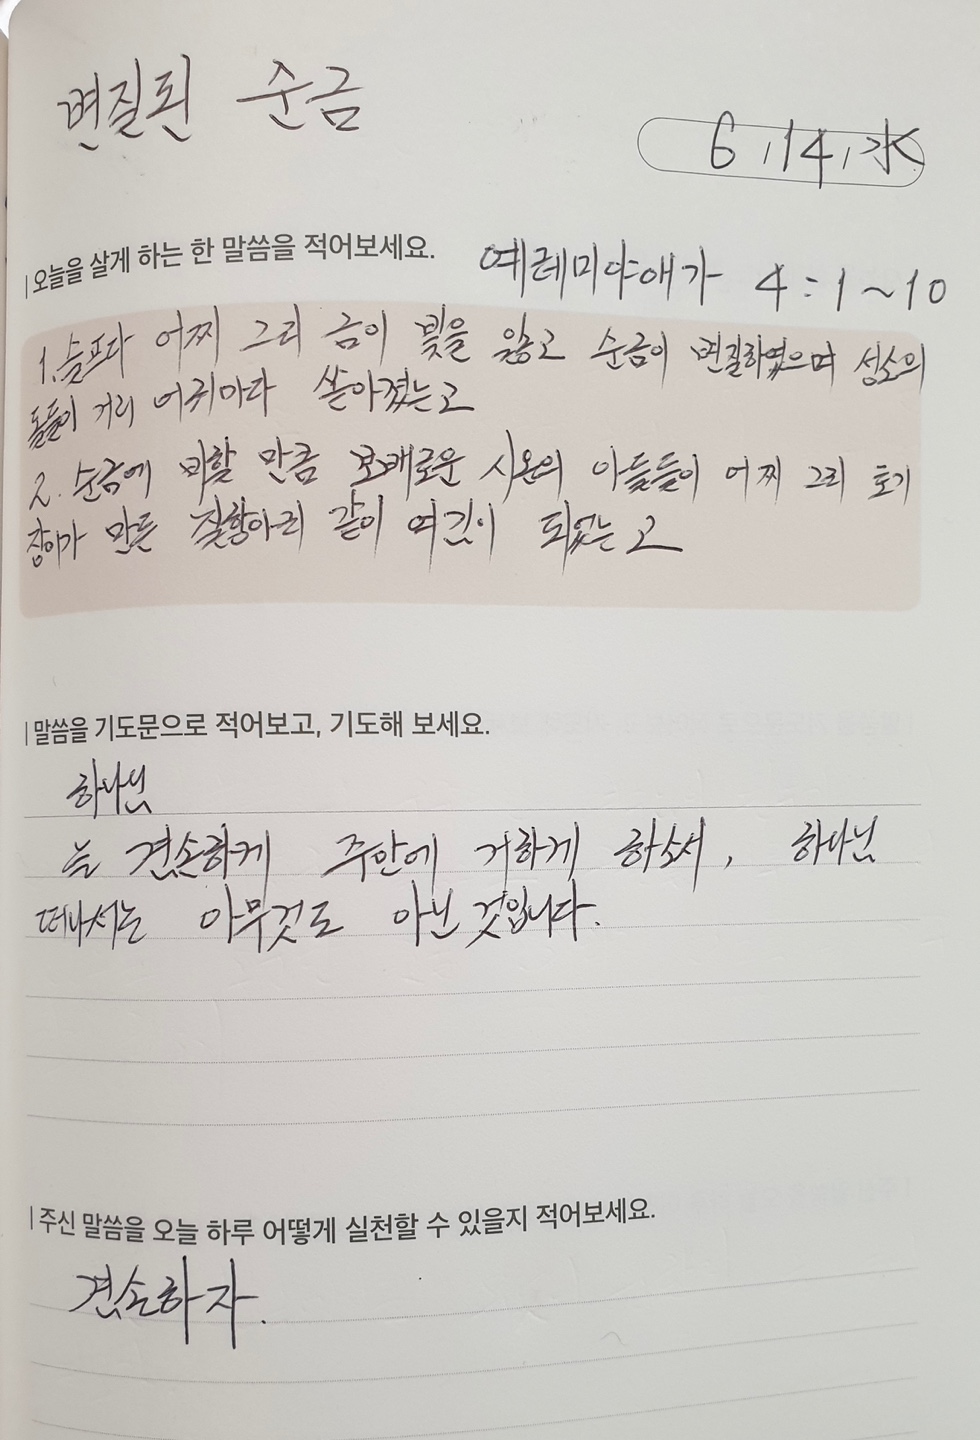 변질된 순금
6, 14, 水
오늘을 살게 하는 한 말씀을 적어보세요.
예레미야애가 4:1~10
1. 슬프다 어찌 그리 금이 빛을 잃고 순금이 변질하였으며 성소의
돌들이 거리 어귀마다 쏟아졌는고
2. 순금에 비할 만큼 보배로운 시온의 아들들이 어찌 그리 토기
장이가 만든 질항아리 같이 여김이 되었는고
말씀을 기도문으로 적어보고, 기도해 보세요.
하나님
늘 겸손하게 주안에 거하게 하소서, 하나님
떠나서는 아무것도 아닌 것입니다.
주신 말씀을 오늘 하루 어떻게 실천할 수 있을지 적어보세요.
겸손하자.